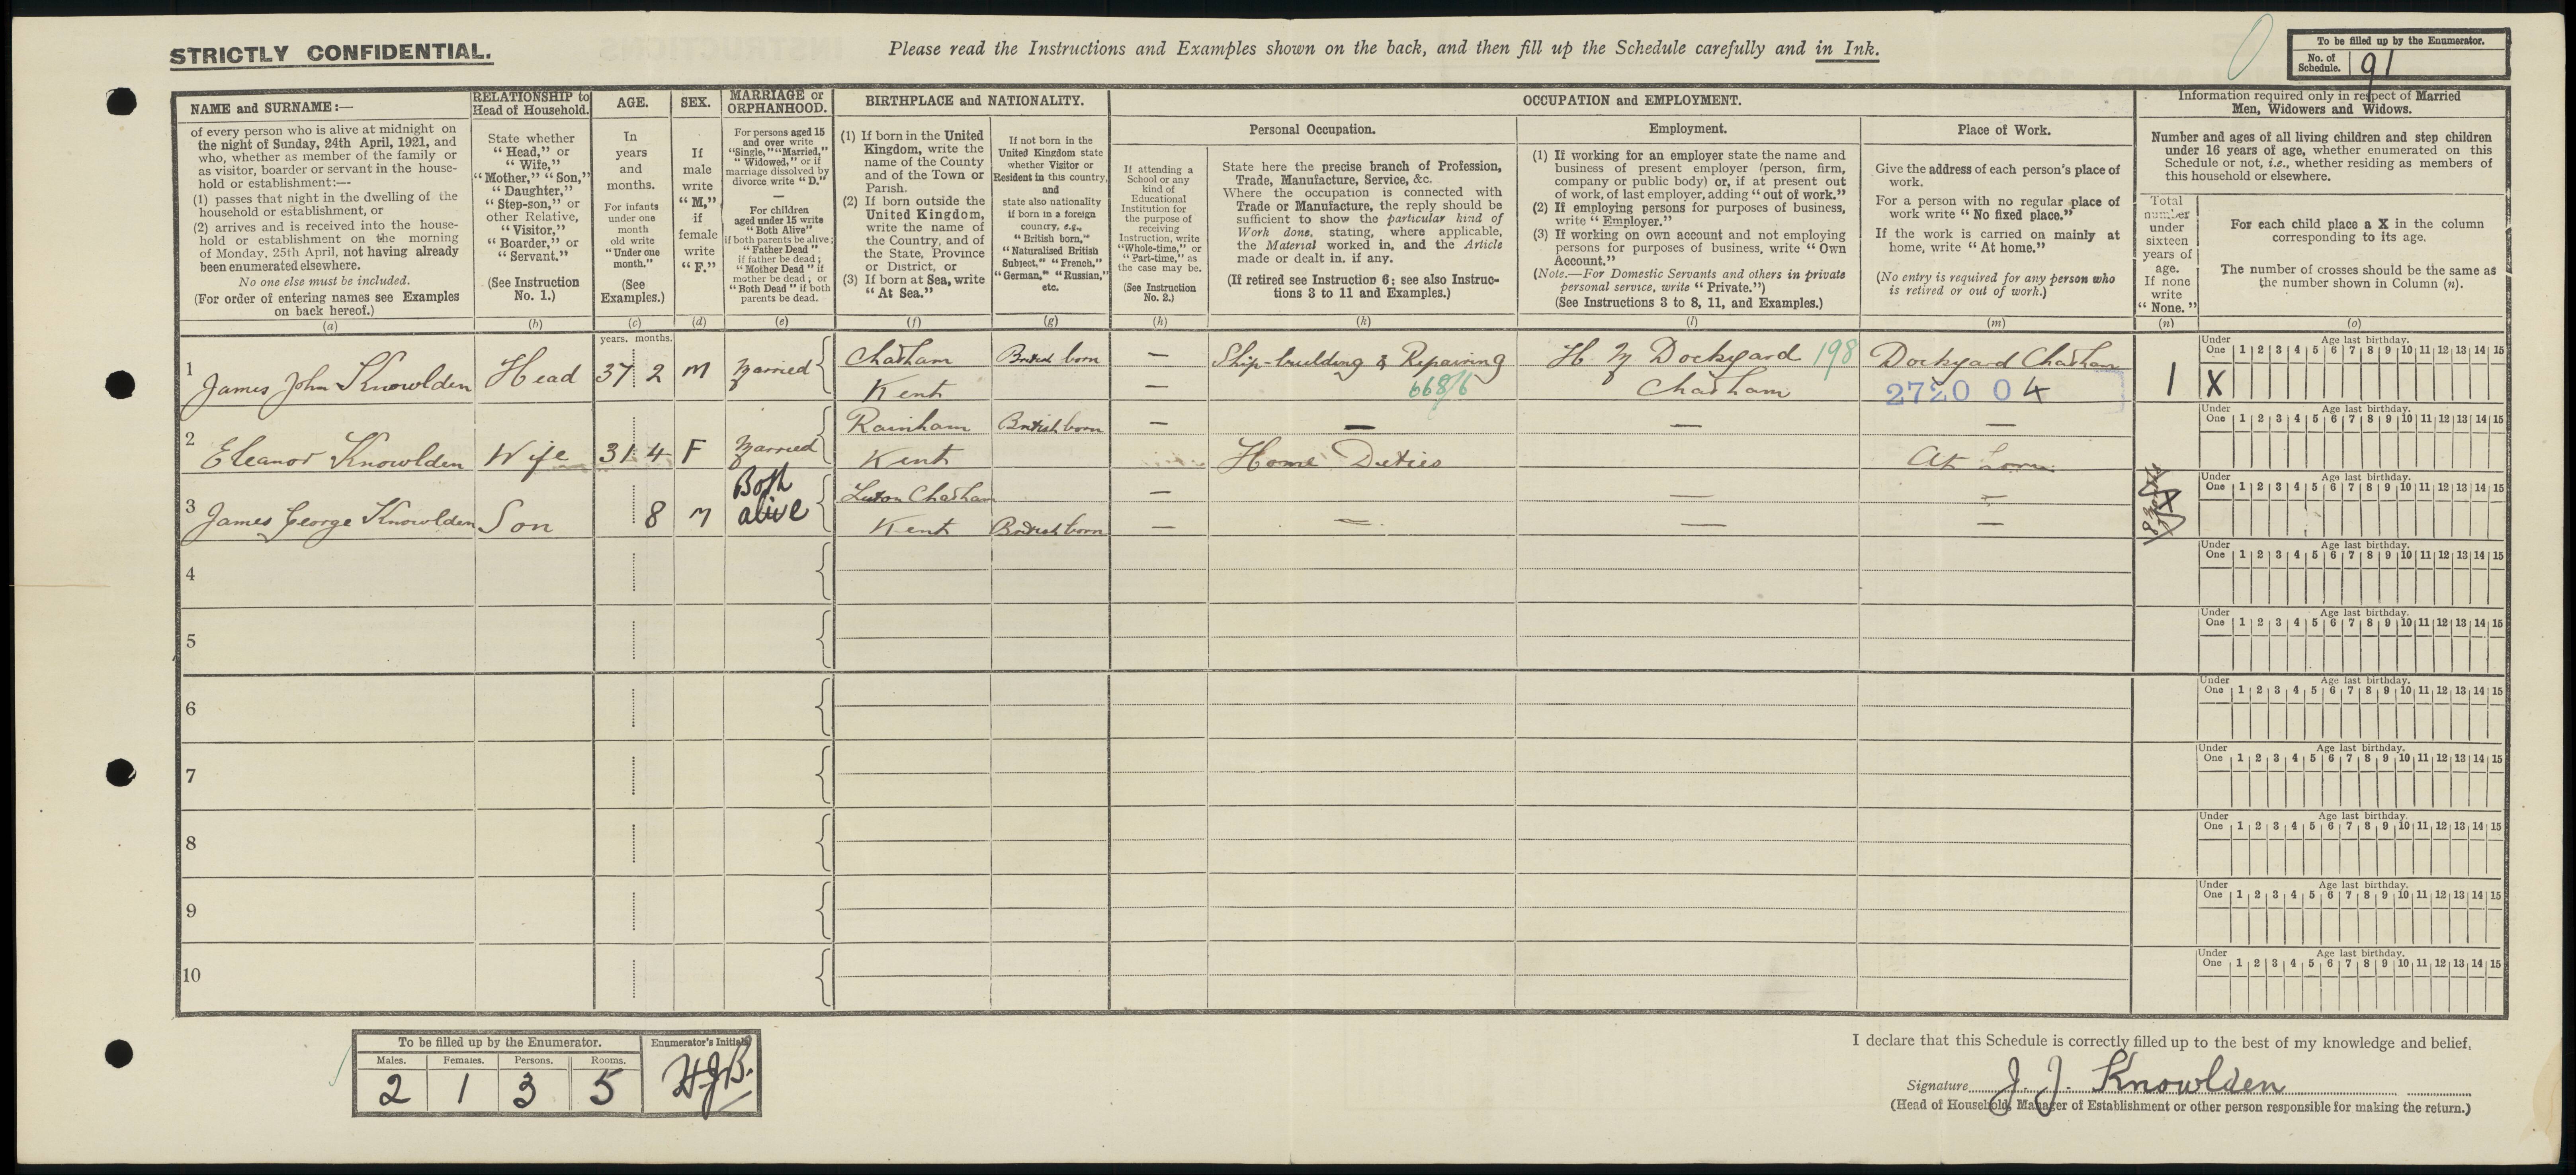 STRICTLY CONFIDENTIAL.
Please read the Instructions and Examples shown on the back, and then fill up the Schedule carefully and in Ink.
To be filled up by the Enumerator.
No. of Schedule. 91
NAME and SURNAME:—
of every person who is alive at midnight on
the night of Sunday, 24th April, 1921, and
who, whether as member of the family or
as visitor, boarder or servant in the house-
hold or establishment:—
(1) passes that night in the dwelling of the
household or establishment, or
(2) arrives and is received into the house-
hold or establishment on the morning
of Monday, 25th April, not having already
been enumerated elsewhere.
No one else must be included.
(For order of entering names see Examples
on back hereof.)
(a)
RELATIONSHIP to
Head of Household.
State whether
"Head," or
"Wife,"
"Mother," "Son,"
"Daughter,"
"Step-son," or
other Relative,
"Visitor,"
"Boarder," or
"Servant."
(See Instruction
No. 1.)
(b)
AGE.
In
years
and
months.
For infants
under one
month
old write
"Under one
month."
(See
Examples.)
(c)
SEX.
If
male
write
"M,"
if
female
write
"F."
(d)
MARRIAGE or
ORPHANHOOD.
For persons aged 15
and over write
"Single," "Married,"
"Widowed," or if
marriage dissolved by
divorce write "D."
—
For children
aged under 15 write
"Both Alive"
if both parents be alive;
"Father Dead"
if father be dead;
"Mother Dead" if
mother be dead; or
"Both Dead" if both
parents be dead.
(e)
BIRTHPLACE and NATIONALITY.
(1) If born in the United
Kingdom, write the
name of the County
and of the Town or
Parish.
(2) If born outside the
United Kingdom,
write the name of
the Country, and of
the State, Province
or District, or
(3) If born at Sea, write
"At Sea."
(f)
If not born in the
United Kingdom state
whether Visitor or
Resident in this country,
and
state also nationality
if born in a foreign
country, e.g.,
"British born,"
"Naturalised British
Subject," "French,"
"German," "Russian,"
etc.
(g)
OCCUPATION and EMPLOYMENT.
If attending a
School or any
kind of
Educational
Institution for
the purpose of
receiving
Instruction, write
"Whole-time," or
"Part-time," as
the case may be.
(See Instruction
No. 2.)
(h)
Personal Occupation.
State here the precise branch of Profession,
Trade, Manufacture, Service, &c.
Where the occupation is connected with
Trade or Manufacture, the reply should be
sufficient to show the particular kind of
Work done, stating, where applicable,
the Material worked in, and the Article
made or dealt in, if any.
(If retired see Instruction 6; see also Instruc-
tions 3 to 11 and Examples.)
(k)
Employment.
(1) If working for an employer state the name and
business of present employer (person, firm,
company or public body) or, if at present out
of work, of last employer, adding "out of work."
(2) If employing persons for purposes of business,
write "Employer."
(3) If working on own account and not employing
persons for purposes of business, write "Own
Account."
(Note.—For Domestic Servants and others in private
personal service, write "Private.")
(See Instructions 3 to 8, 11, and Examples.)
(l)
Place of Work.
Give the address of each person's place of
work.
For a person with no regular place of
work write "No fixed place."
If the work is carried on mainly at
home, write "At home."
(No entry is required for any person who
is retired or out of work.)
(m)
Information required only in respect of Married
Men, Widowers and Widows.
Number and ages of all living children and step children
under 16 years of age, whether enumerated on this
Schedule or not, i.e., whether residing as members of
this household or elsewhere.
Total
number
under
sixteen
years of
age.
If none
write
"None."
(n)
For each child place a X in the column
corresponding to its age.
The number of crosses should be the same as
the number shown in Column (n).
(o)
years. months.
Under One Age last birthday. 1 2 3 4 5 6 7 8 9 10 11 12 13 14 15
1 James John Knowlden Head 37 2 M Married Chatham British born — Ship-building & Repairing H M Dockyard 198 Dockyard Chatham 1 X
Kent — 668/6 Chatham 2720 0 4
Under One Age last birthday. 1 2 3 4 5 6 7 8 9 10 11 12 13 14 15
2 Eleanor Knowlden Wife 31 4 F Married Rainham British born — — — —
Kent Home Duties At home
Under One Age last birthday. 1 2 3 4 5 6 7 8 9 10 11 12 13 14 15
3 James George Knowlden Son 8 M Both alive Luton Chatham — — —
Kent British born — — — —
Under One Age last birthday. 1 2 3 4 5 6 7 8 9 10 11 12 13 14 15
4
Under One Age last birthday. 1 2 3 4 5 6 7 8 9 10 11 12 13 14 15
5
Under One Age last birthday. 1 2 3 4 5 6 7 8 9 10 11 12 13 14 15
6
Under One Age last birthday. 1 2 3 4 5 6 7 8 9 10 11 12 13 14 15
7
Under One Age last birthday. 1 2 3 4 5 6 7 8 9 10 11 12 13 14 15
8
Under One Age last birthday. 1 2 3 4 5 6 7 8 9 10 11 12 13 14 15
9
Under One Age last birthday. 1 2 3 4 5 6 7 8 9 10 11 12 13 14 15
10
To be filled up by the Enumerator.
Males. Females. Persons. Rooms.
2 1 3 5
Enumerator's Initials
H.J.B.
I declare that this Schedule is correctly filled up to the best of my knowledge and belief.
Signature J. J. Knowlden
(Head of Household, Manager of Establishment or other person responsible for making the return.)